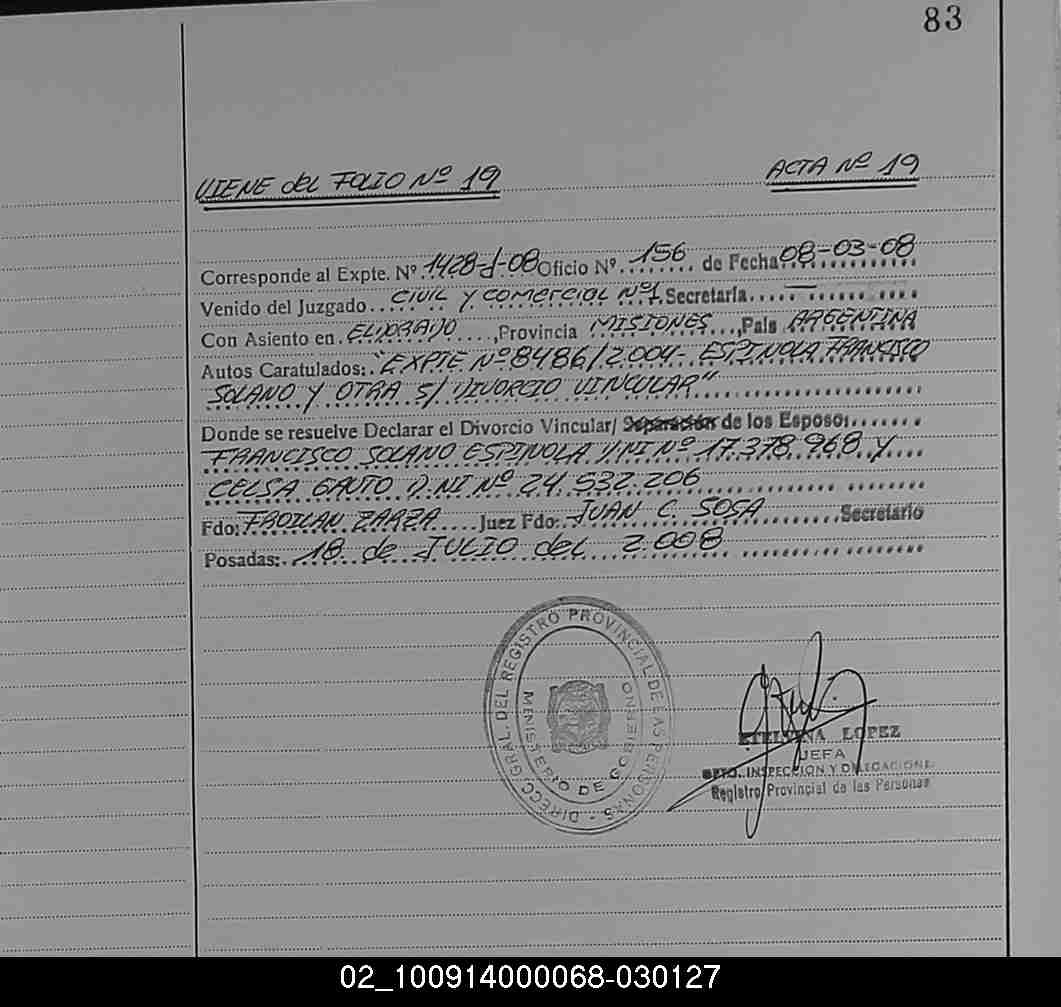 83
VIENE del FOLIO Nº 19
ACTA Nº 19
Corresponde al Expte. Nº 1428-J-08 Oficio Nº 156 de Fecha 08-03-08
Venido del Juzgado CIVIL Y COMERCIAL Nº1, Secretaría —
Con Asiento en ELDORADO, Provincia MISIONES, País ARGENTINA
Autos Caratulados: "EXPTE Nº 8486/2.004- ESPINOLA FRANCISCO
SOLANO Y OTRA S/ DIVORCIO VINCULAR"
Donde se resuelve Declarar el Divorcio Vincular/ Separación de los Esposo:
FRANCISCO SOLANO ESPINOLA D.NI Nº 17.378.968 Y
CELSA GAUTO D.NI Nº 24.532.206
Fdo: FROILAN ZARZA Juez Fdo: JUAN C. SOSA Secretario
Posadas: 18 de JULIO del 2.008
DIRECC. GRAL. DEL REGISTRO PROVINCIAL DE LAS PERSONAS -
MINISTERIO DE GOBIERNO
ETELVINA LOPEZ
JEFA
DPTO. INSPECCION Y DELEGACIONES
Registro Provincial de las Personas
02_100914000068-030127